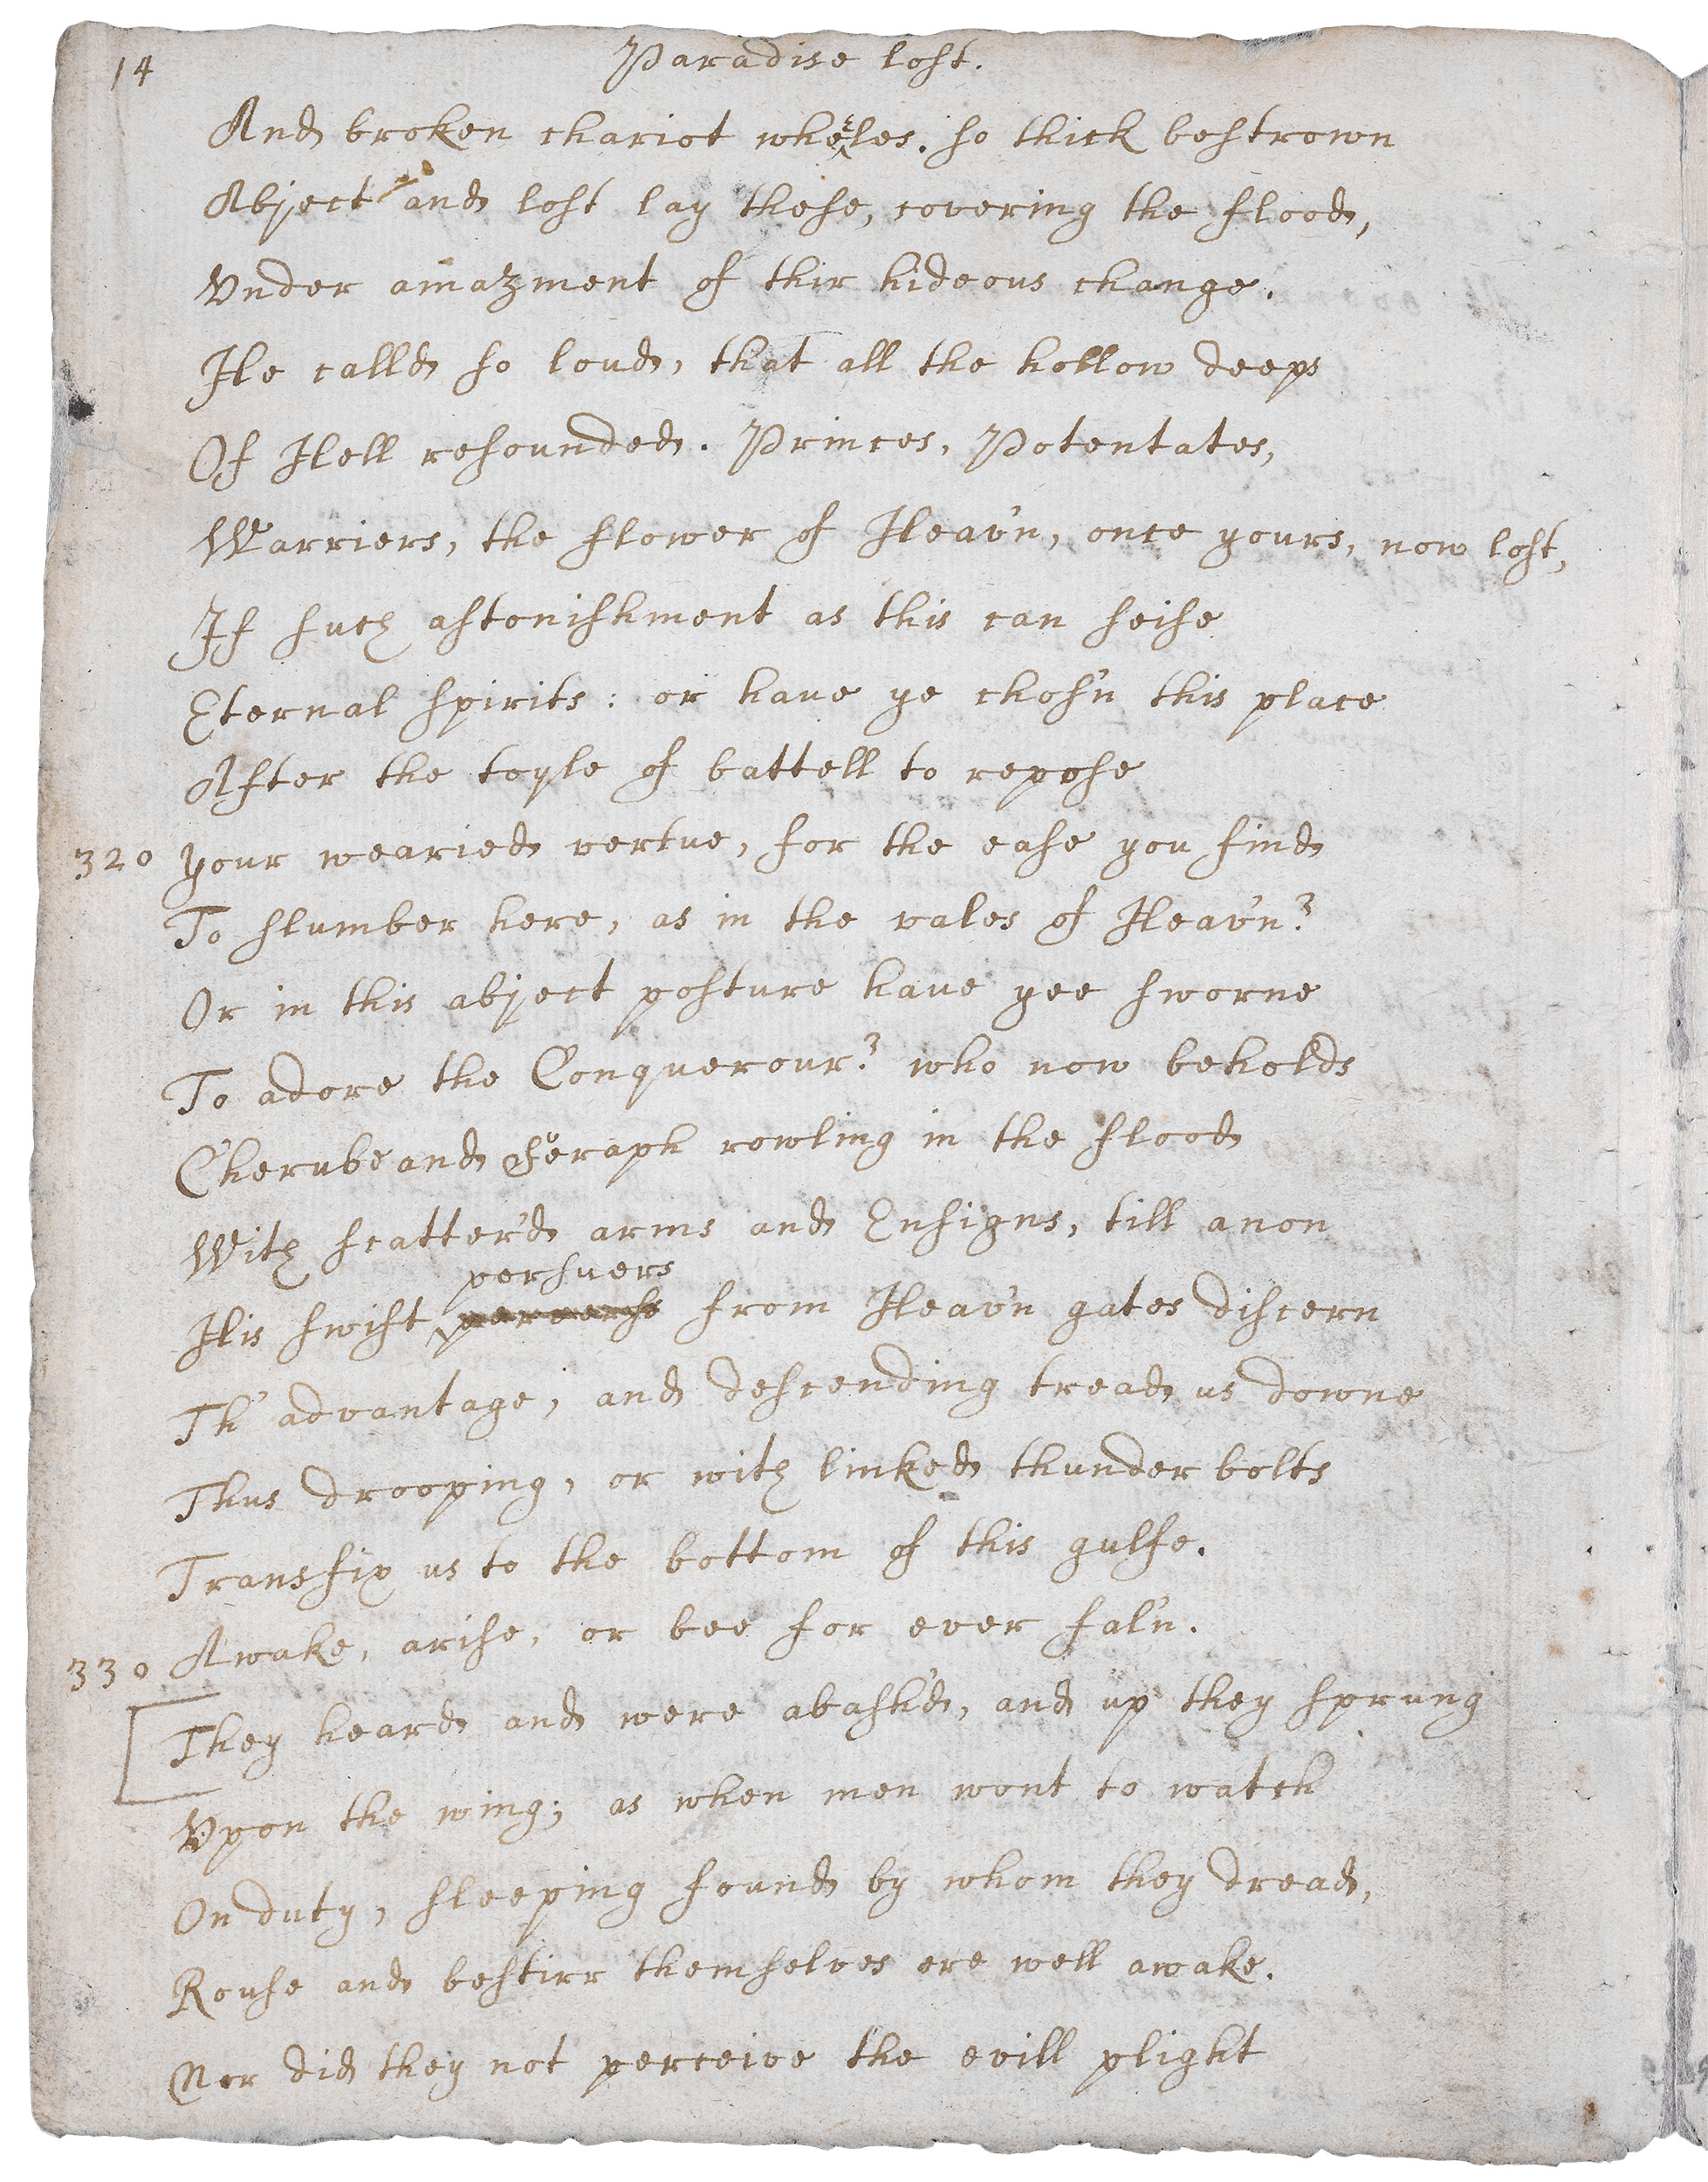 14
Paradise lost.
And broken chariot wheeles. so thick bestrown
Abject and lost lay these, covering the flood,
Vnder amazment of thir hideous change.
He calld so loud, that all the hollow deeps
Of Hell resounded. Princes, Potentates,
Warriers, the flower of Heav'n, once yours, now lost,
If such astonishment as this can seise
Eternal spirits: or haue ye chos'n this place
After the toyle of battell to repose
320 your wearied vertue, for the ease you find
To slumber here, as in the vales of Heav'n?
Or in this abject posture haue yee sworne
To adore the Conquerour? who now beholds
Cherube and Seraph rowling in the flood
With scatter'd arms and Ensigns, till anon
persuers
His swift from Heav'n gates discern
Th' advantage, and descending tread us downe
Thus drooping, or with linked thunder bolts
Transfix us to the bottom of this gulfe.
330 Awake, arise, or bee for ever fal'n.
They heard and were abash'd, and up they sprung
Vpon the wing; as when men wont to watch
On duty, sleeping found by whom they dread,
Rouse and bestirr themselves ere well awake.
Nor did they not perceive the evill plight